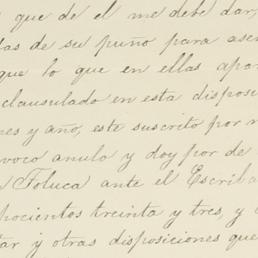 que de el me debe dar,
las de su puño para asen
que lo que en ellas apar
clausulado en esta disposi
nes y año, este suscrito por m
voco anulo y doy por de
Toluca ante el Escriba
hocientos treinta y tres, y
tar y otras disposiciones que